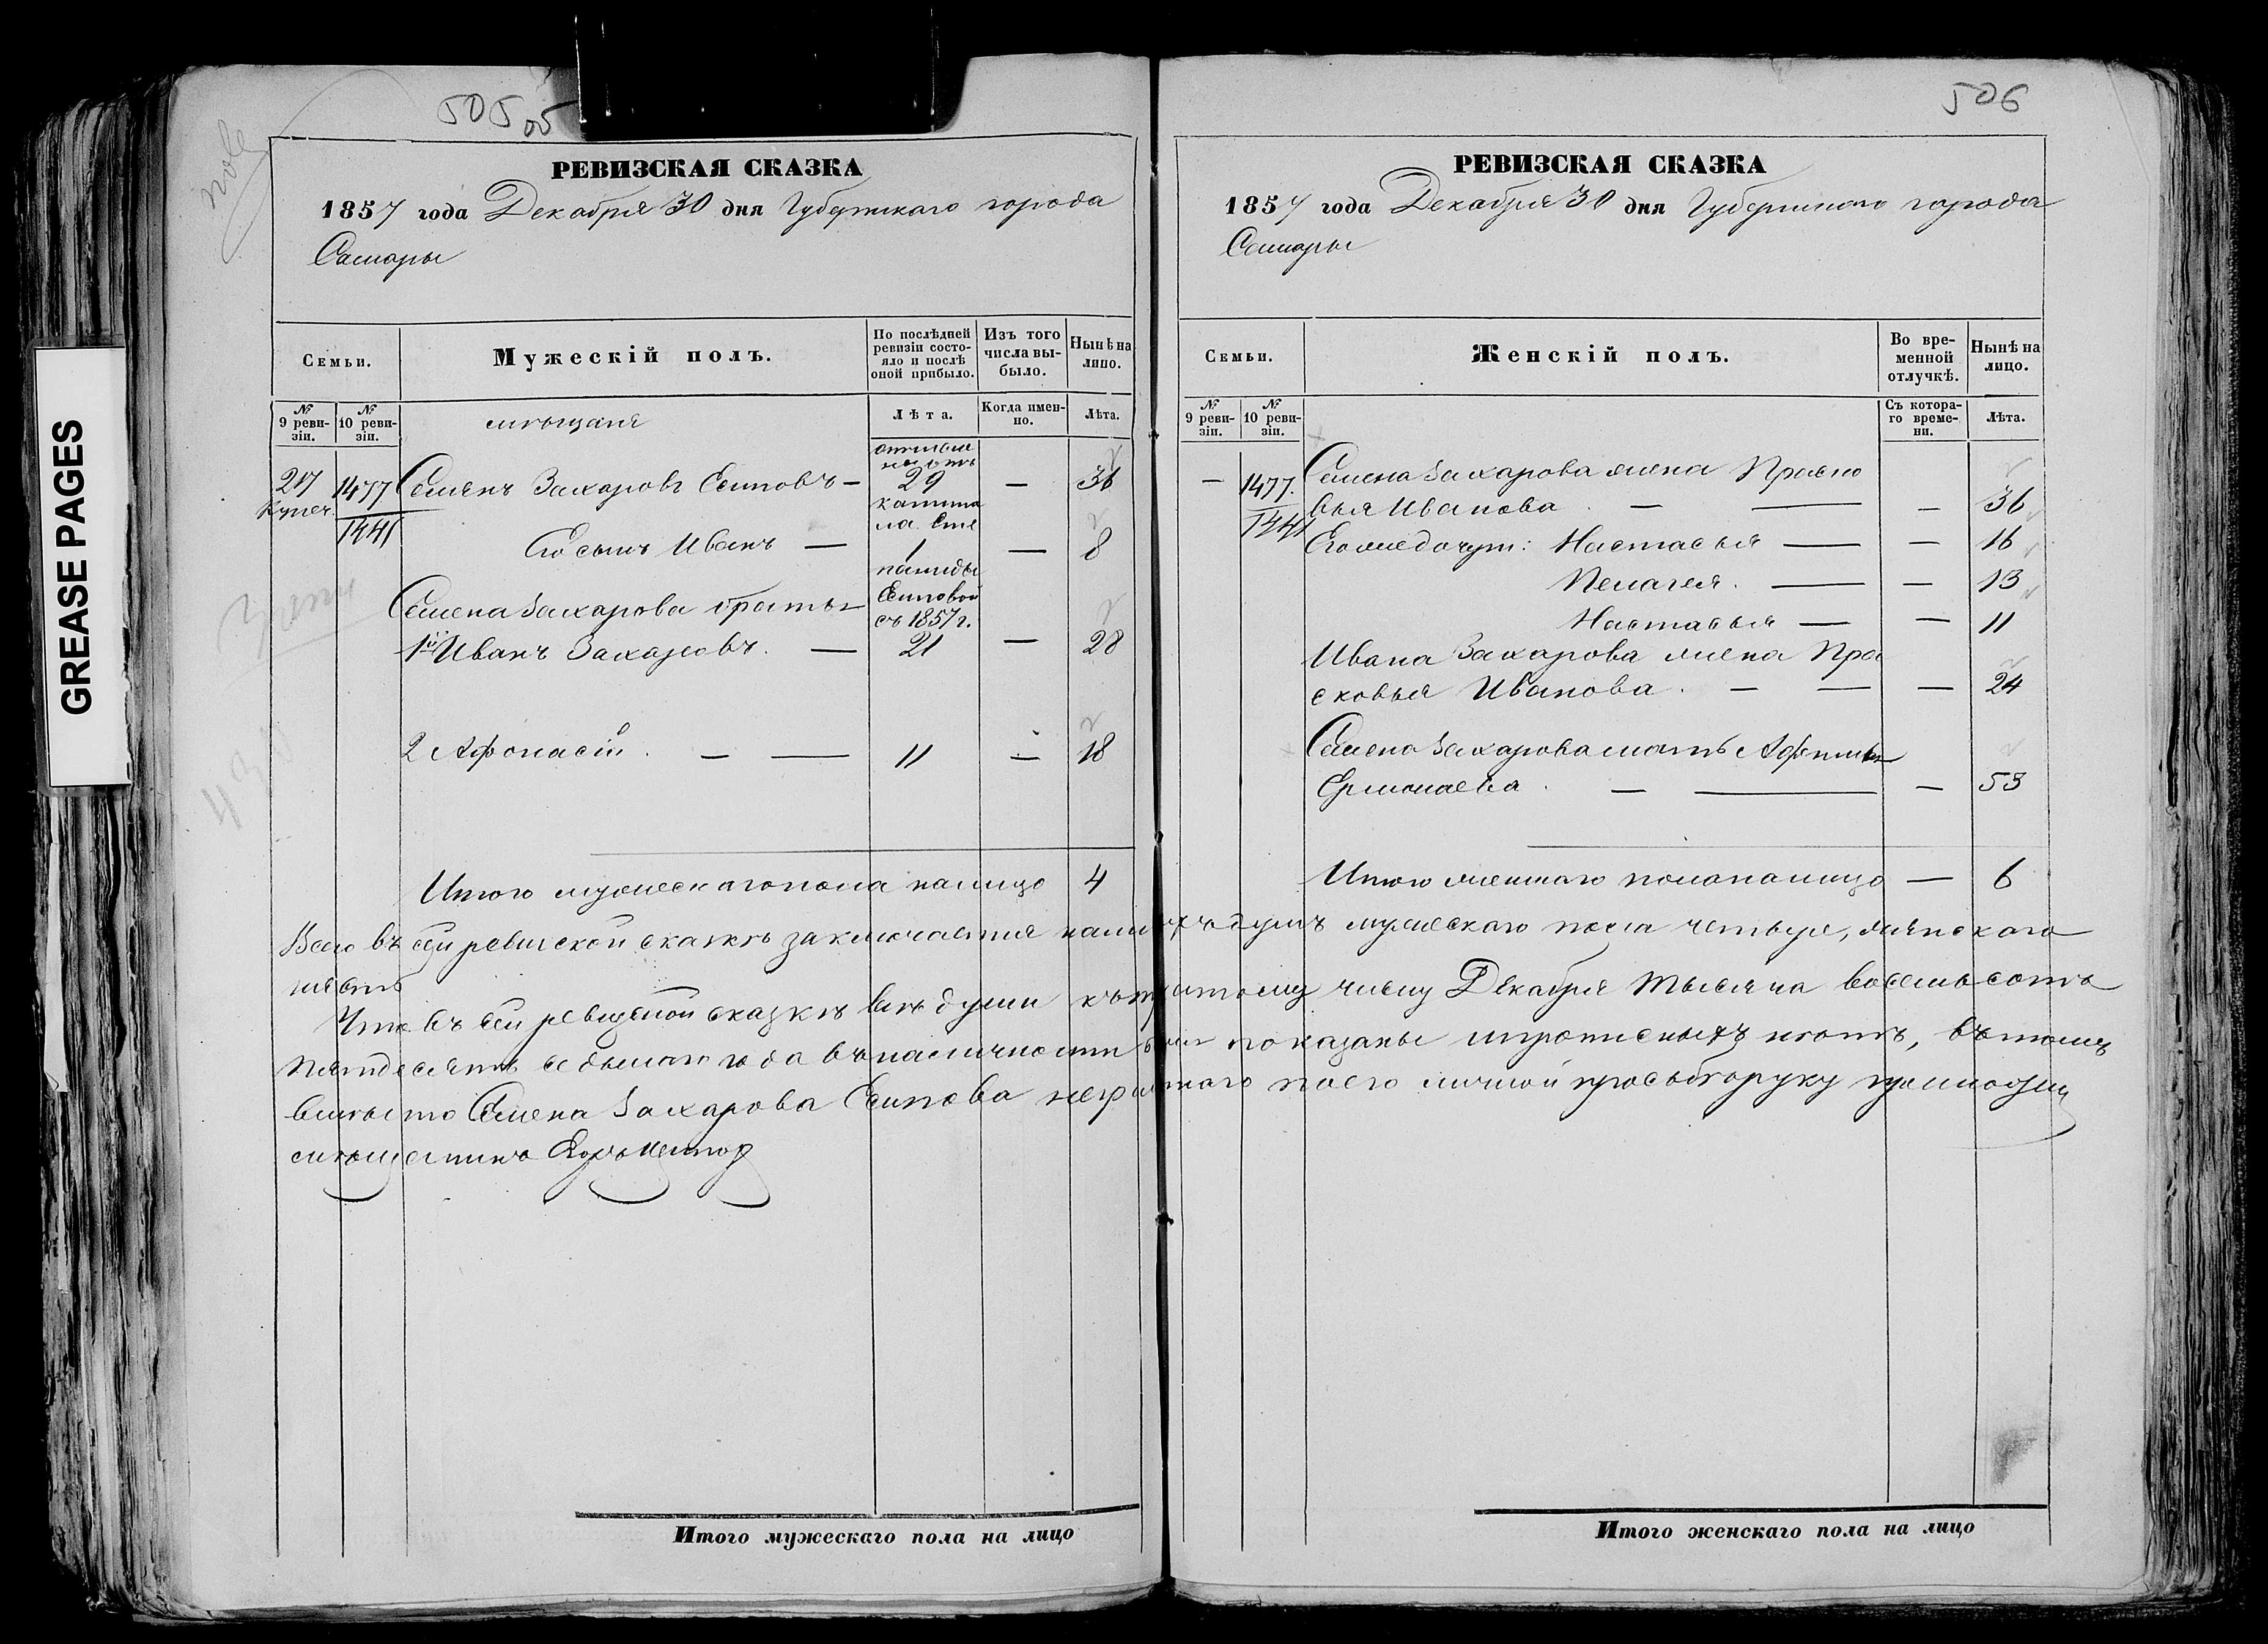 GREASE PAGES
505
05
РЕВИЗСКАЯ СКАЗКА
1857 года Декабря 30 дня Губернскаго города
Самары
Семьи.
Мужескій полъ.
По послѣдней ревизіи состо-
яло и послѣ
оной прибыло.
Изъ того
числа вы-
было.
Нынѣ на
лицо.
№
9 реви-
зіи.
№
10 реви-
зіи.
мѣщане
Лѣта.
Когда имен-
но.
Лѣта.
217 1477 Семенъ Захаровъ Есиповъ — 29 — 36
Купеч.
1441
Его сынъ Иванъ — 1 — 8
Семена Захарова братья
Есиповой
съ 1857 г.
1й Иванъ Захаровъ. — 21 — 28
2 Афонасій. — — 11 — 18
Итого мужескаго пола налицо 4
506
РЕВИЗСКАЯ СКАЗКА
1857 года Декабря 30 дня Губернскаго города
Самары
Семьи.
Женскій полъ.
Во вре-
менной
отлучкѣ.
Нынѣ на
лицо.
№
9 реви-
зіи.
№
10 реви-
зіи.
Съ котора-
го време-
ни.
Лѣта.
— 1477. Семена Захарова жена Праско
1441 вья Иванова. — — — 36
Его же дочери: Настасья — — 16
Пелагея. — — 13
Настасья — — 11
Ивана Захарова жена Пра
сковья Иванова. — — — 24
Семена Захарова мать
Ермолаева. — — — 53
Итого женскаго пола налицо — 6
Всего въ сей ревиской сказкѣ заключается душъ мужескаго пола четыре, женскаго
шесть
Что въ сей ревиской сказкѣ всѣ души числу Декабря тысяча восемьсотъ
пятдесятъ седьмаго года въ наличности показаны и прописныхъ нѣтъ, въ томъ
вмѣсто Семена Захарова Есипова по его личной прозьбѣ руку приложилъ
мѣщанинъ
Итого мужескаго пола на лицо
Итого женскаго пола на лицо